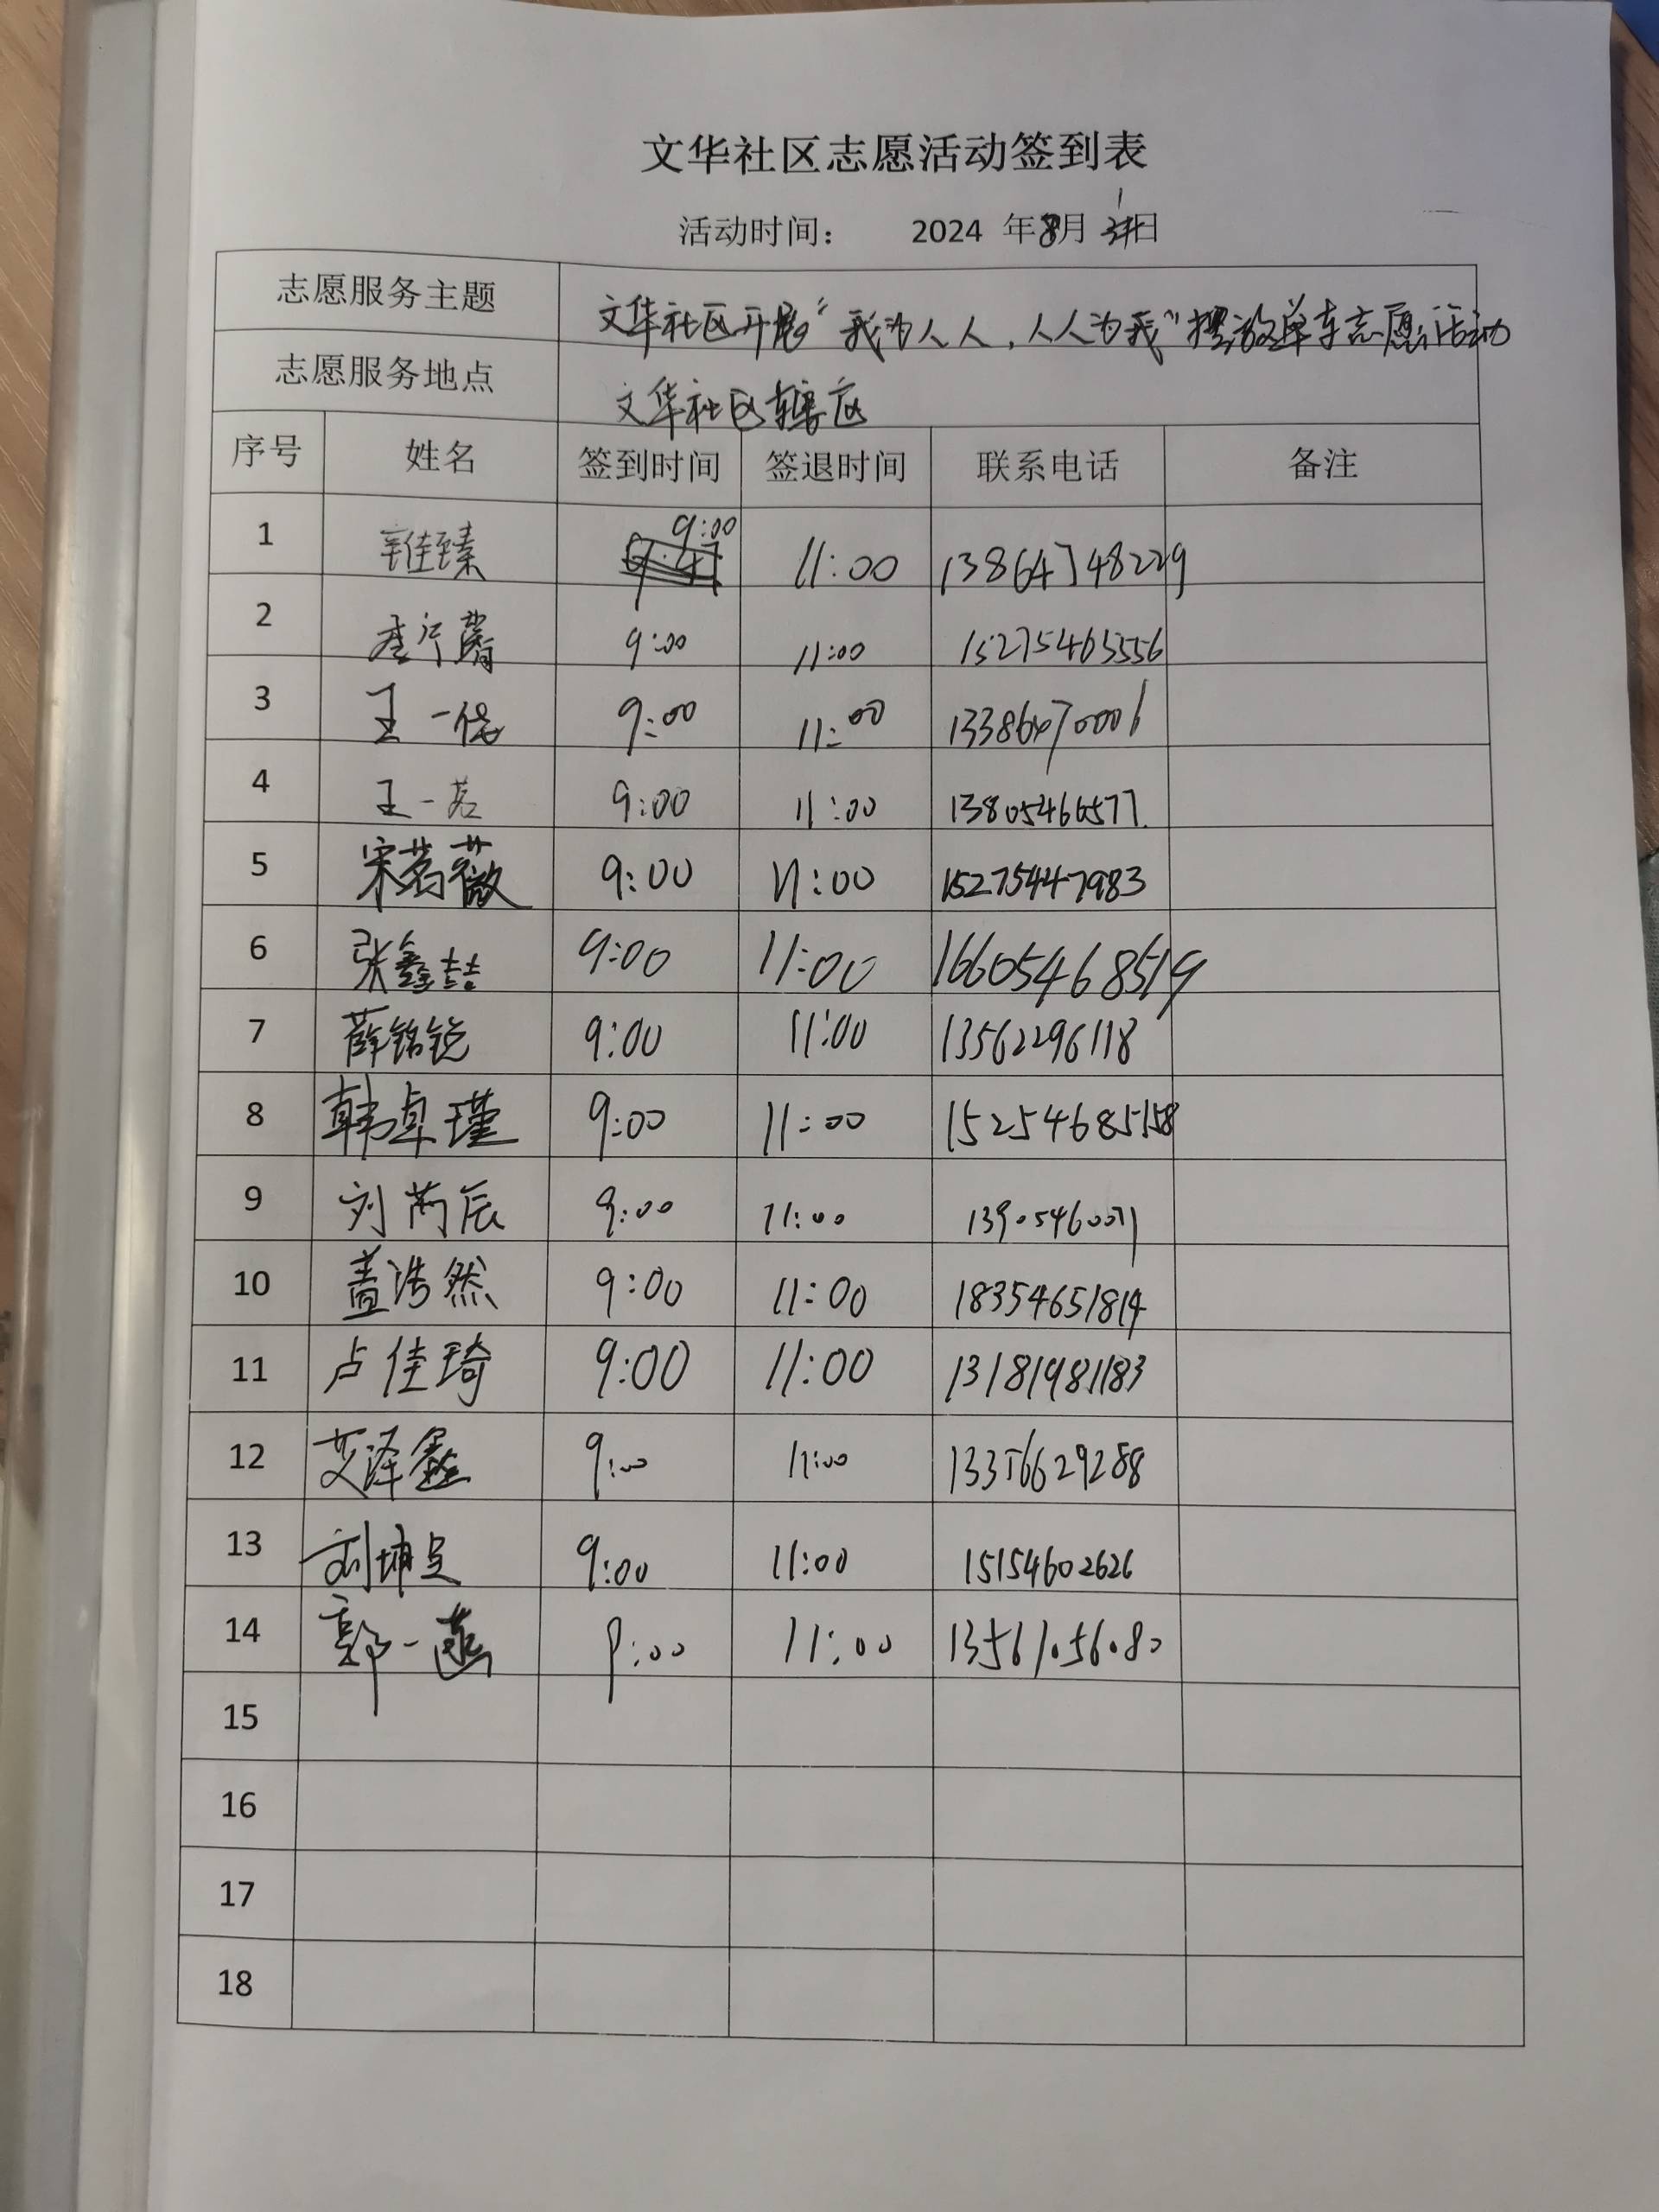 文华社区志愿活动签到表
活动时间： 2024 年8月1日
志愿服务主题 文华社区开展“我为人人，人人为我”摆放单车志愿活动
志愿服务地点 文华社区辖区
序号 姓名 签到时间 签退时间 联系电话 备注
1 辛佳臻 9:00 11:00 13864748229
2 9:00 11:00 15275463556
3 王一 9:00 11:00
4 王一茗 9:00 11:00 13805466577
5 宋茗薇 9:00 11:00 15275447983
6 张鑫喆 9:00 11:00 16605468519
7 薛铭锐 9:00 11:00 13562296118
8 韩卓瑾 9:00 11:00 15254685158
9 刘芮辰 9:00 11:00 13905460071
10 盖浩然 9:00 11:00 18354651814
11 卢佳琦 9:00 11:00 13181981183
12 艾泽鑫 9:00 11:00 13356629288
13 刘 9:00 11:00 15154602626
14 郭一 9:00 11:00 13561056080
15
16
17
18